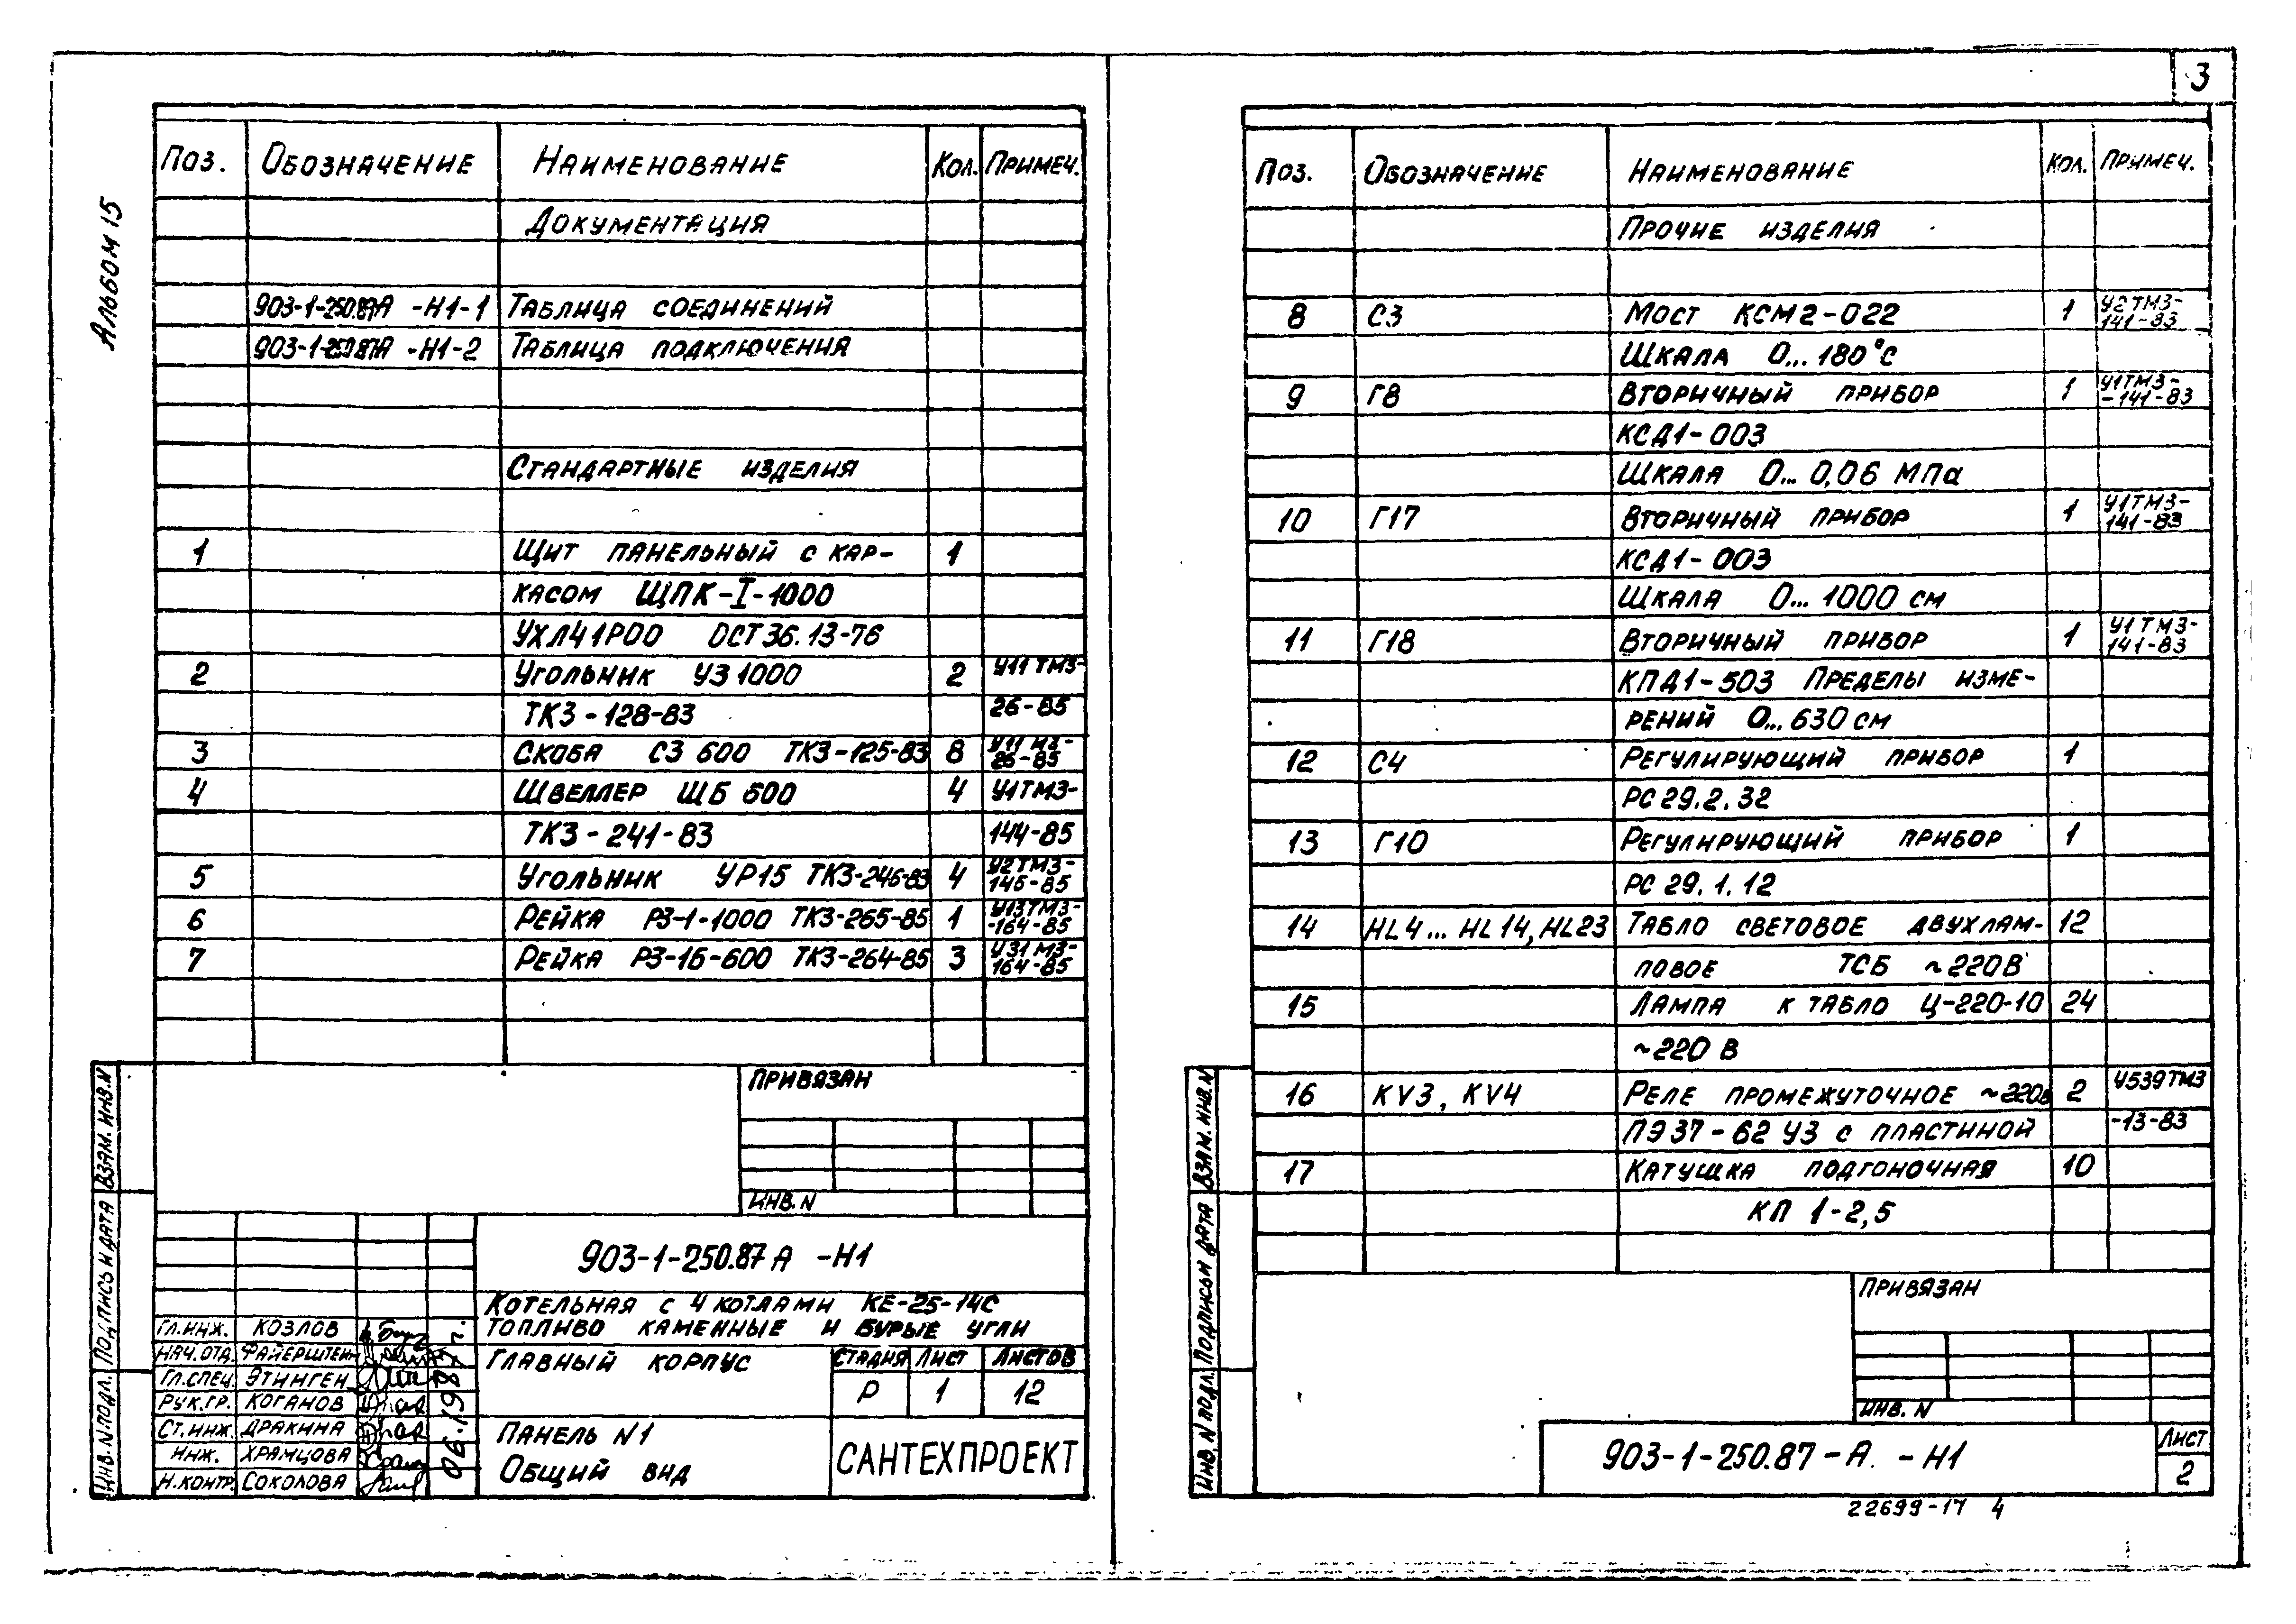 3
Альбом 15
Поз. Обозначение Наименование Кол. Примеч.
Документация
903-1-250.87А -Н1-1 Таблица соединений
903-1-250.87А -Н1-2 Таблица подключения
Стандартные изделия
1 Щит панельный с кар- 1
касом ЩПК-I-1000
УХЛ41Р00 ОСТ36.13-76
2 Угольник УЗ 1000 2 У11 ТМ3-
ТК3-128-83 26-85
3 Скоба СЗ 600 ТК3-125-83 8
26-85
4 Швеллер ШБ 600 4 У1ТМ3-
ТК3-241-83 144-85
5 Угольник УР15 ТК3-246-83 4 У2ТМ3-
146-85
6 Рейка РЗ-1-1000 ТК3-265-85 1 У13ТМ3-
-164-85
7 Рейка РЗ-1Б-600 ТК3-264-85 3
164-85
Привязан
Инв. N
903-1-250.87 А -Н1
Котельная с 4 котлами КЕ-25-14С
Топливо каменные и бурые угли
Гл.инж. Козлов
Нач.отд. Файерштейн
Гл.спец. Этинген
Рук.гр. Коганов
Ст.инж. Дракина
Инж. Храмцова
Н.контр. Соколова
06.1987г.
Главный корпус
Стадия Лист Листов
Р 1 12
Панель N1
Общий вид
САНТЕХПРОЕКТ
Взам. инв. N
Подпись и дата
Инв. N подл.
Поз. Обозначение Наименование Кол. Примеч.
Прочие изделия
8 С3 Мост КСМ2-022 1 У2ТМ3-
141-83
Шкала 0...180°С
9 Г8 Вторичный прибор 1 У1ТМ3-
-141-83
КСД1-003
Шкала 0...0,06 МПа
10 Г17 Вторичный прибор 1 У1ТМ3-
141-83
КСД1-003
Шкала 0...1000 см
11 Г18 Вторичный прибор 1 У1ТМ3-
141-83
КПД1-503 Пределы изме-
рений 0...630 см
12 С4 Регулирующий прибор 1
РС29.2.32
13 Г10 Регулирующий прибор 1
РС29.1.12
14 HL4...HL14, HL23 Табло световое двухлам- 12
повое ТСБ ~220В
15 Лампа к табло Ц-220-10 24
~220 В
16 KV3, KV4 Реле промежуточное ~220в 2 У539ТМ3
ПЭ37-62 УЗ с пластиной -13-83
17 Катушка подгоночная 10
КП 1-2,5
Привязан
Инв. N
903-1-250.87-А. -Н1
Лист
2
Взам. инв. N
Подпись и дата
Инв. N подл.
22699-17 4